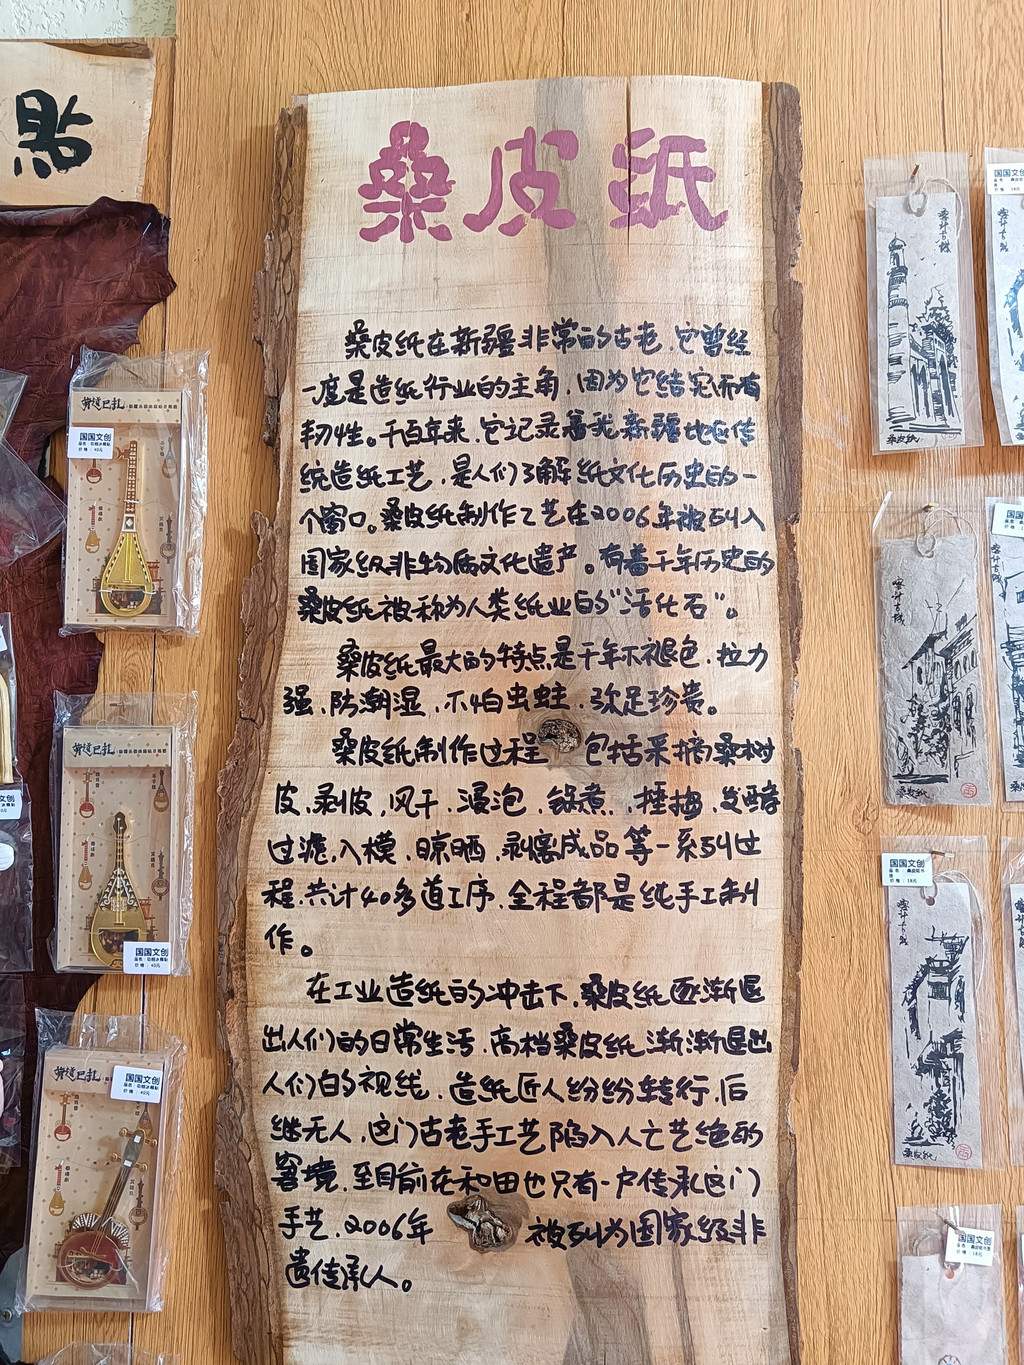 桑皮纸
桑皮纸在新疆非常的古老，它曾经
一度是造纸行业的主角，因为它结实而有
韧性。千百年来，它记录着我新疆地区传
统造纸工艺，是人们了解纸文化历史的一
个窗口。桑皮纸制作工艺在2006年被列入
国家级非物质文化遗产。有着千年历史的
桑皮纸被称为人类纸业的“活化石”。
桑皮纸最大的特点是千年不褪色，拉力
强，防潮湿，不怕虫蛀，弥足珍贵。
桑皮纸制作过程包括采摘桑树
皮，剥皮，风干，浸泡，锅煮，捶捣，发酵
过滤，入模，晾晒，剥离成品等一系列过
程，共计40多道工序，全程都是纯手工制
作。
在工业造纸的冲击下，桑皮纸逐渐退
出人们的日常生活，高档桑皮纸渐渐退出
人们的视线，造纸匠人纷纷转行，后
继无人，这门古老手工艺陷入人亡艺绝的
窘境，至目前在和田也只有一户传承这门
手艺，2006年被列为国家级非
遗传承人。
国国文创
价格：40元
国国文创
价格：40元
国国文创
价格：40元
喀什古城
桑皮纸
喀什古城
桑皮纸
国国文创
价格：18元
喀什古城
桑皮纸
国国文创
价格：18元